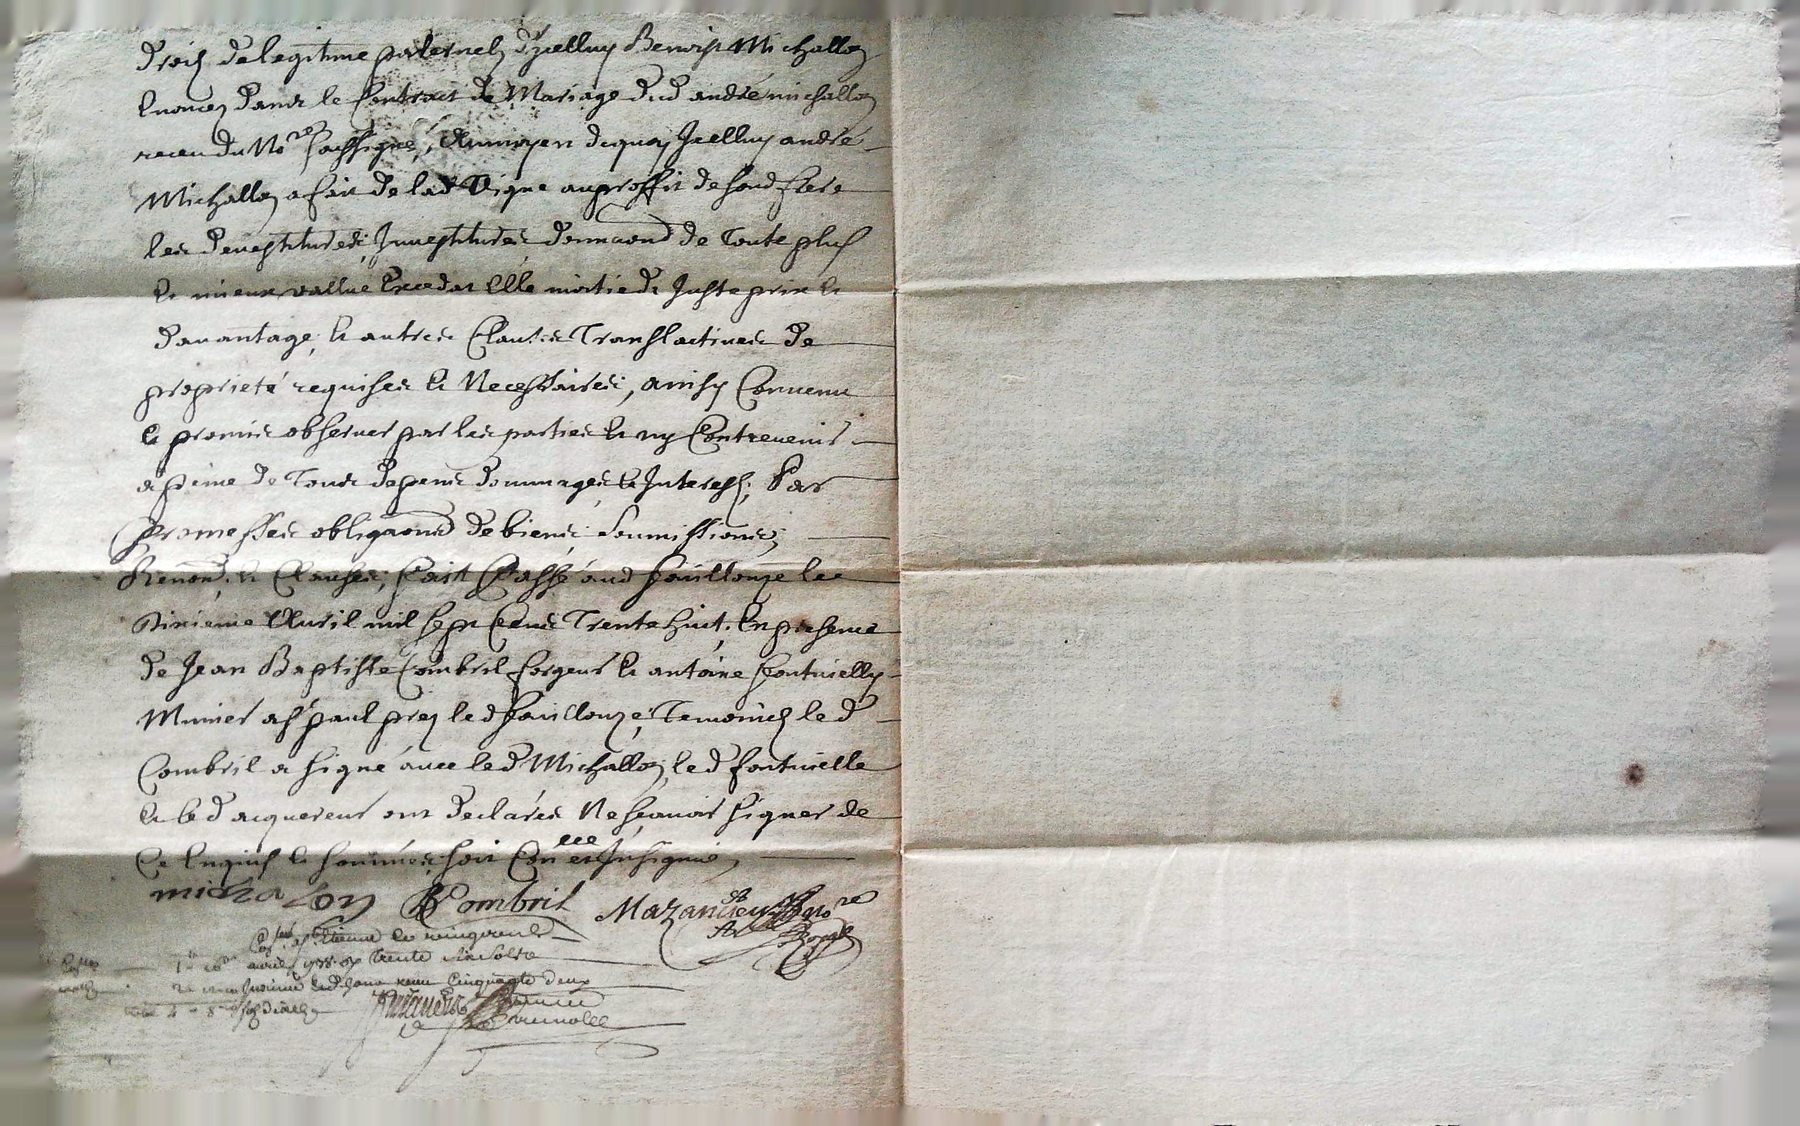 droits de legitime paternels d'jcelluy Benoist Michallon
Enoncez dans le Contract de Mariage dud andré michallon
receu du No.re soussigné, Aumoyen dequoy Jcelluy andré
Michallon a fait de lad Vigne auproffit de sond frere
les devestitures, Jnvestitures, donnaond de Toute plus
et mieux vallue Excedat Elle moitié du Juste prix et
davantage, et autres Clauses Translactives de
proprieté requises et Necessaires, ainsy Convenu
et promis observer par les parties et ny Contrevenir
a peine de Tous depens dommages et Jnterests, Par
promesses obligaons de biens, soumissions,
Renonc. et Clauses, fait et Passé aud fouillouze le
Sixieme Avril mil sept Cens Trente huit, En presence
de Jean Baptiste Combril forgeur et antoine fontvielle
Munier a St paul prez led fouillouze Temoins led
Combril a signé avec led Michallon, led fontvielle
et led acquereur ont declarés Ne sçavoir signer de
Ce Enquis et sommés soit Con.lle et Jnsignué
michalon Combril Mazandieu No.re
Royal
a st Etienne le
avril 1738 Reçu trente six sols
Cinquante deux
sols